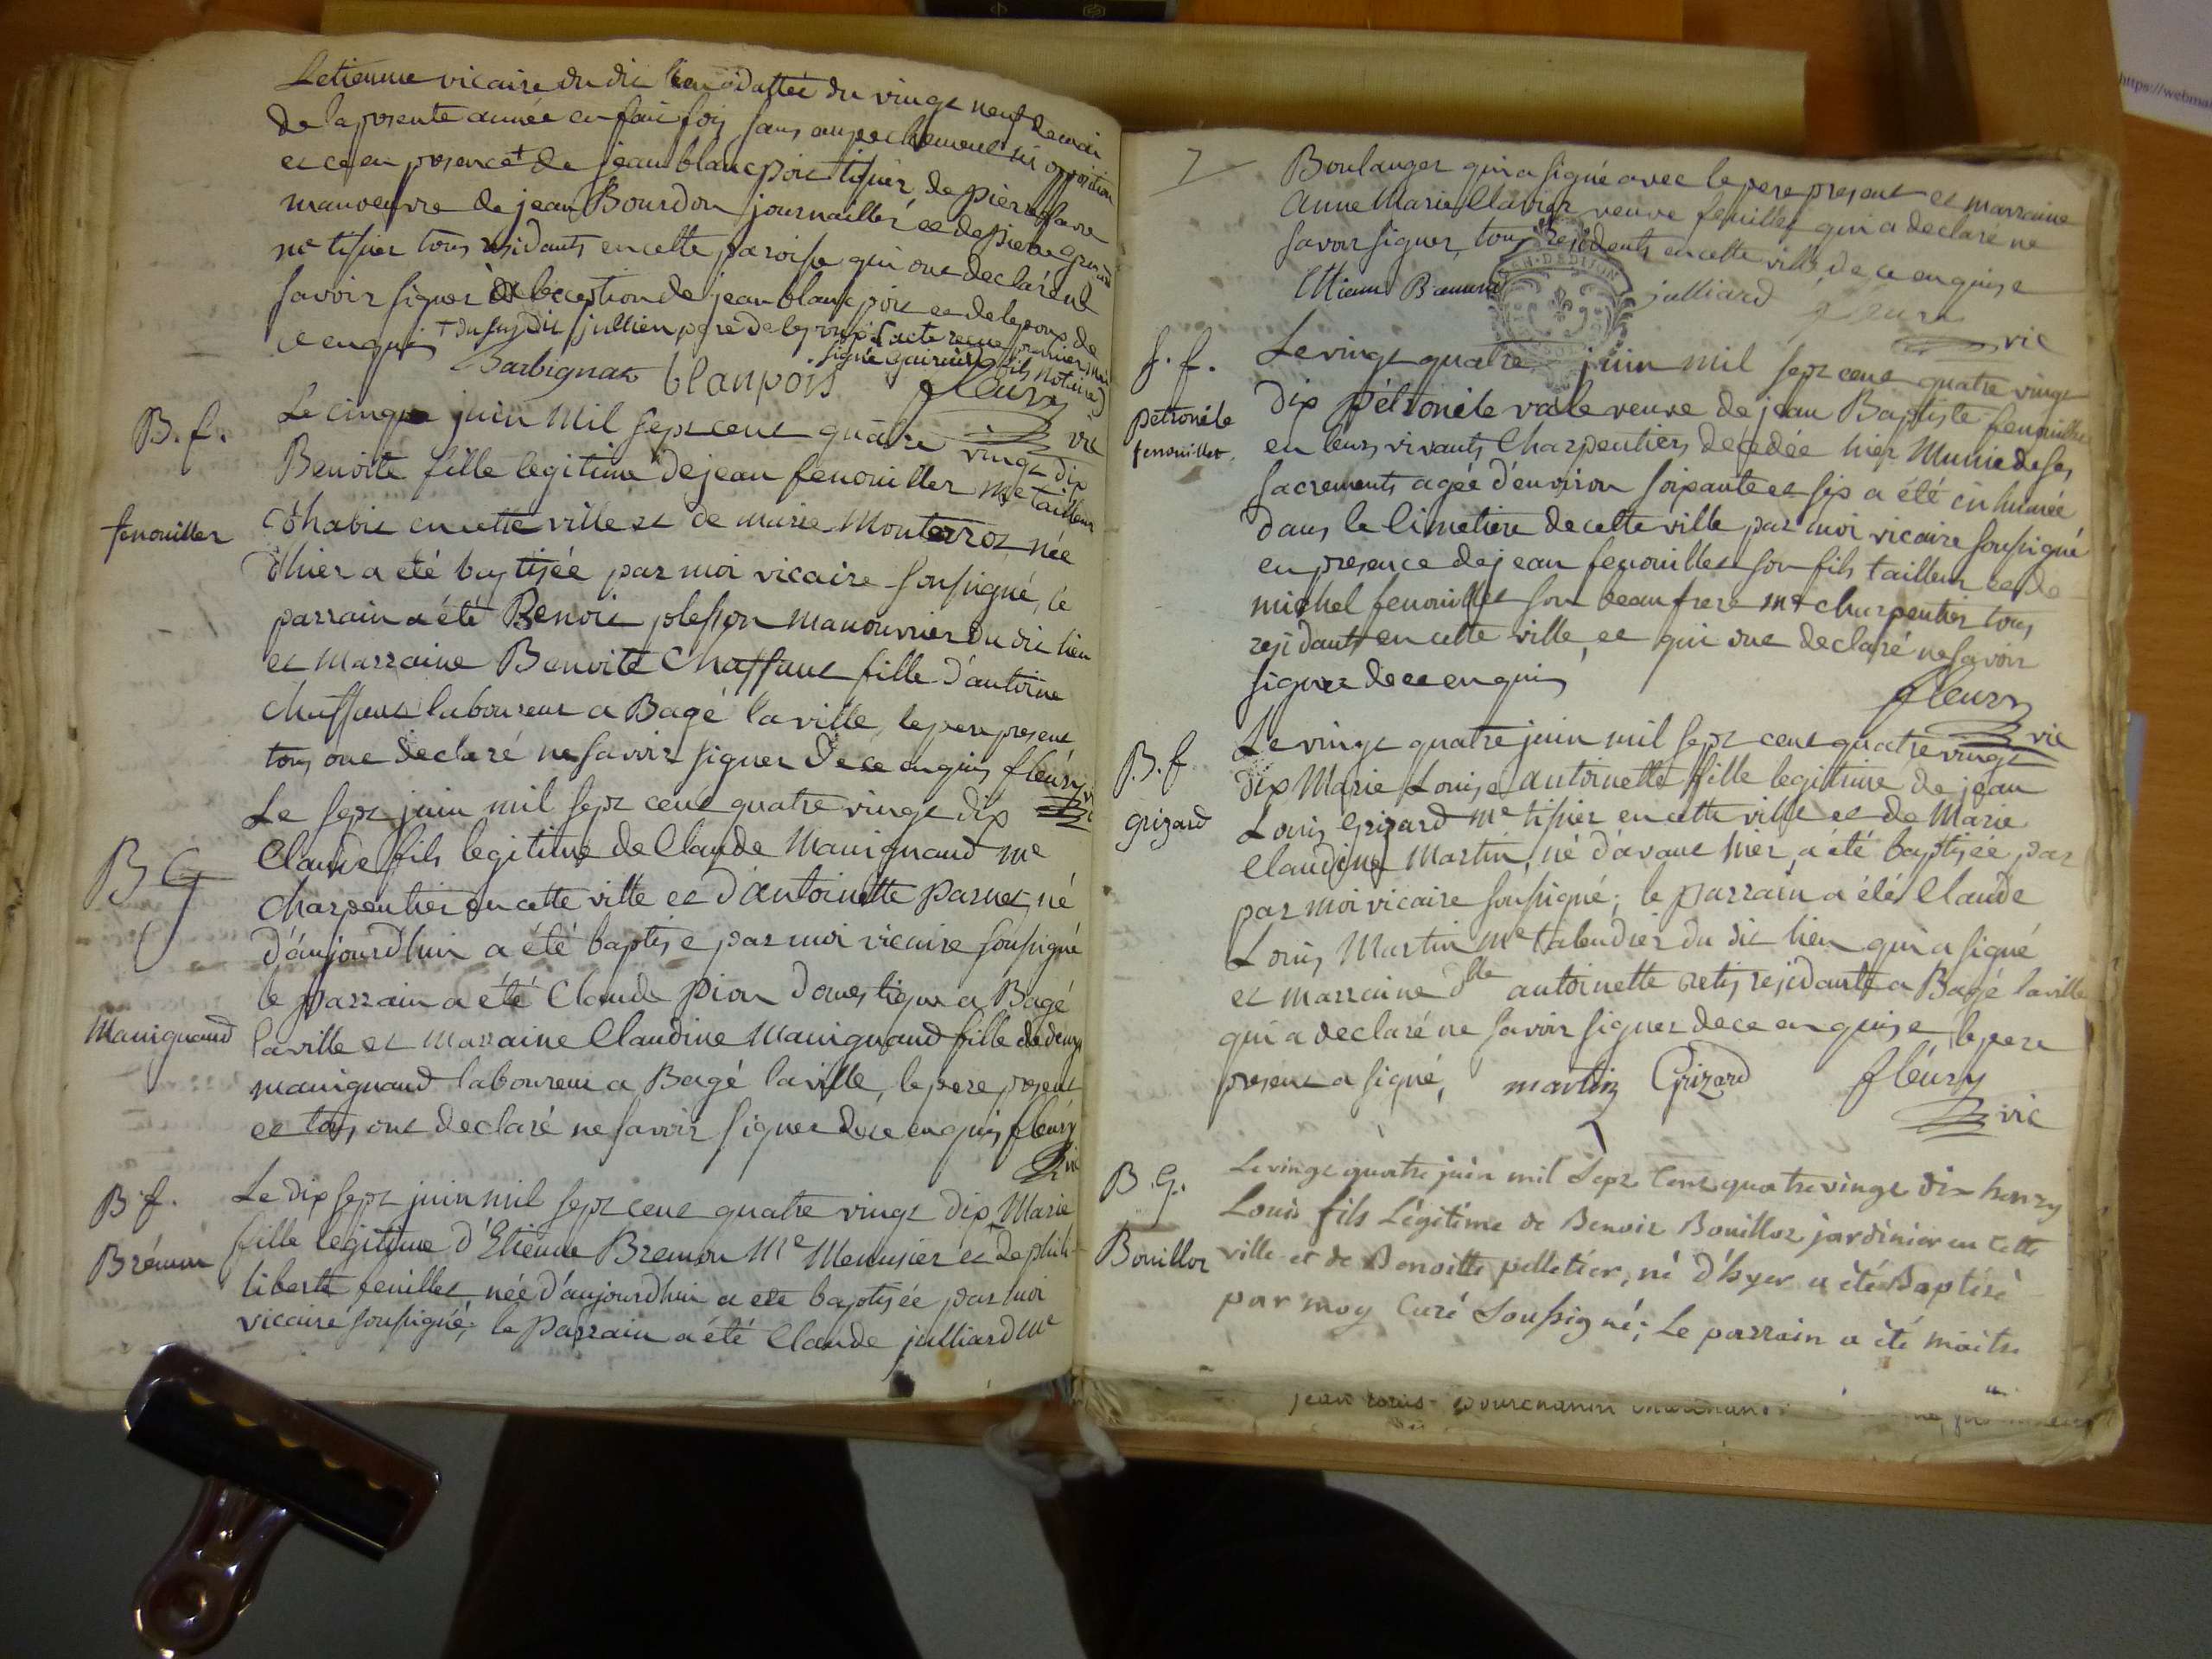 Letienne vicaire du dit lieu dattée du vingt neuf de mai
de la presente année en fait foi, sans empechement ni opposition
et ce en presence + de jean blancpoit tissier de pierre favre
manoeuvre de jean Bourdon journaillier et de pierre
me tissier tous residants en cette paroisse qui ont declarés ne
savoir signer à l'exception de jean blanc poit et de lepoux de
ce enquis + du susdit jullien pere de lepoux
Barbignat blanpois fleury
vic
B. f.
fenouillet
Le cinque juin mil sept cent quatre vingt dix
Benoite fille legitime de jean fenouillet me tailleur
d'habit en cette ville et de marie Monterrot née
d'hier a été baptisée par moi vicaire soussigné, le
parrain a été Benoit plesson manouvrier du dit lieu
et marraine Benoite Chaffaut fille d'antoine
Chaffaut laboureur a Bagé la ville, le pere present
tous ont declaré ne savoir signer de ce enquis fleury vic
B G
Manignand
Le sept juin mil sept cent quatre vingt dix
Claude fils legitime de Claude Manignand me
charpentier en cette ville et d'antoinette parnet né
d'aujourd'hui a été baptise par moi vicaire soussigné
le parrain a été Claude pion domestique a Bagé
la ville et marraine Claudine Manignand fille de denys
manignand laboureur a Bagé la ville, le pere present
et tous ont declaré ne savoir signer de ce enquis fleury
vic
B f.
Brémon
Le dix sept juin mil sept cent quatre vingt dix Marie
fille legitime d'Etienne Bremon Me Menuisier et de phili-
liberte feuillet née d'aujourd'hui a été baptisée par moi
vicaire soussigné; le parrain a été Claude julliard me
7
Boulanger qui a signé avec le pere present et marraine
Anne Marie Clavier veuve feuillet qui a declaré ne
savoir signer, tous residents en cette ville, de ce enquise
Ettienne Bremond julliard fleury
vic
GEN. DE DIJON
S. f.
petronile
fenouillet.
Le vingt quatre juin mil sept cent quatre vingt
dix pétronile vale veuve de jean Baptiste fenouillet
en leurs vivants Charpentiers decedée hier Munie de ses
sacrements agée d'environ soixante et six a été inhumée
dans le Cimetiere de cette ville par moi vicaire soussigné
en presence de jean fenouillet son fils tailleur et de
michel fenouillet son beau frere me charpentier tous
residants en cette ville, et qui ont declaré ne savoir
signer de ce enquis
fleury
vic
B. f
grizard
Le vingt quatre juin mil sept cent quatre vingt
dix Marie Louise antoinette fille legitime de jean
Louis Grizard me tissier en cette ville et de Marie
Claudine Martin, né d'avant hier, a été baptisée par
par moi vicaire soussigné; le parrain a été Claude
Louis Martin me talendier du dit lieu qui a signé
et marraine dlle antoinette retis residante a Bagé la ville
qui a declaré ne savoir signer de ce enquise, le pere
present a signé, martin Grizard fléury
vic
B. G.
Bouillot
Le vingt quatre juin mil Sept Cent quatrevingt dix henry
Louis fils Légitime de Benoit Bouillot jardinier en Cette
ville et de Benoitte pelletier, né d'hyer a été Baptisé
par moy Curé Soussigné; Le parrain a été maitre
https://webmai